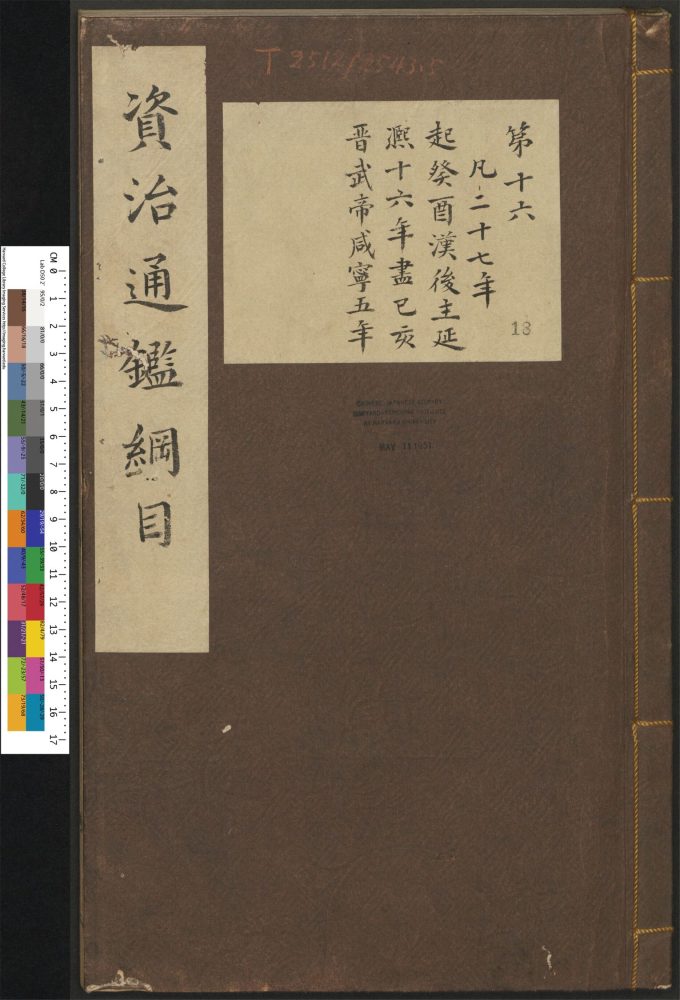 資治通鑑綱目
T 2512/2543.5
第十六
凡二十七年
起癸酉漢後主延
熈十六年盡己亥
晋武帝咸寧五年
13
MAY 11 1951
CM 0 1 2 3 4 5 6 7 8 9 10 11 12 13 14 15 16 17